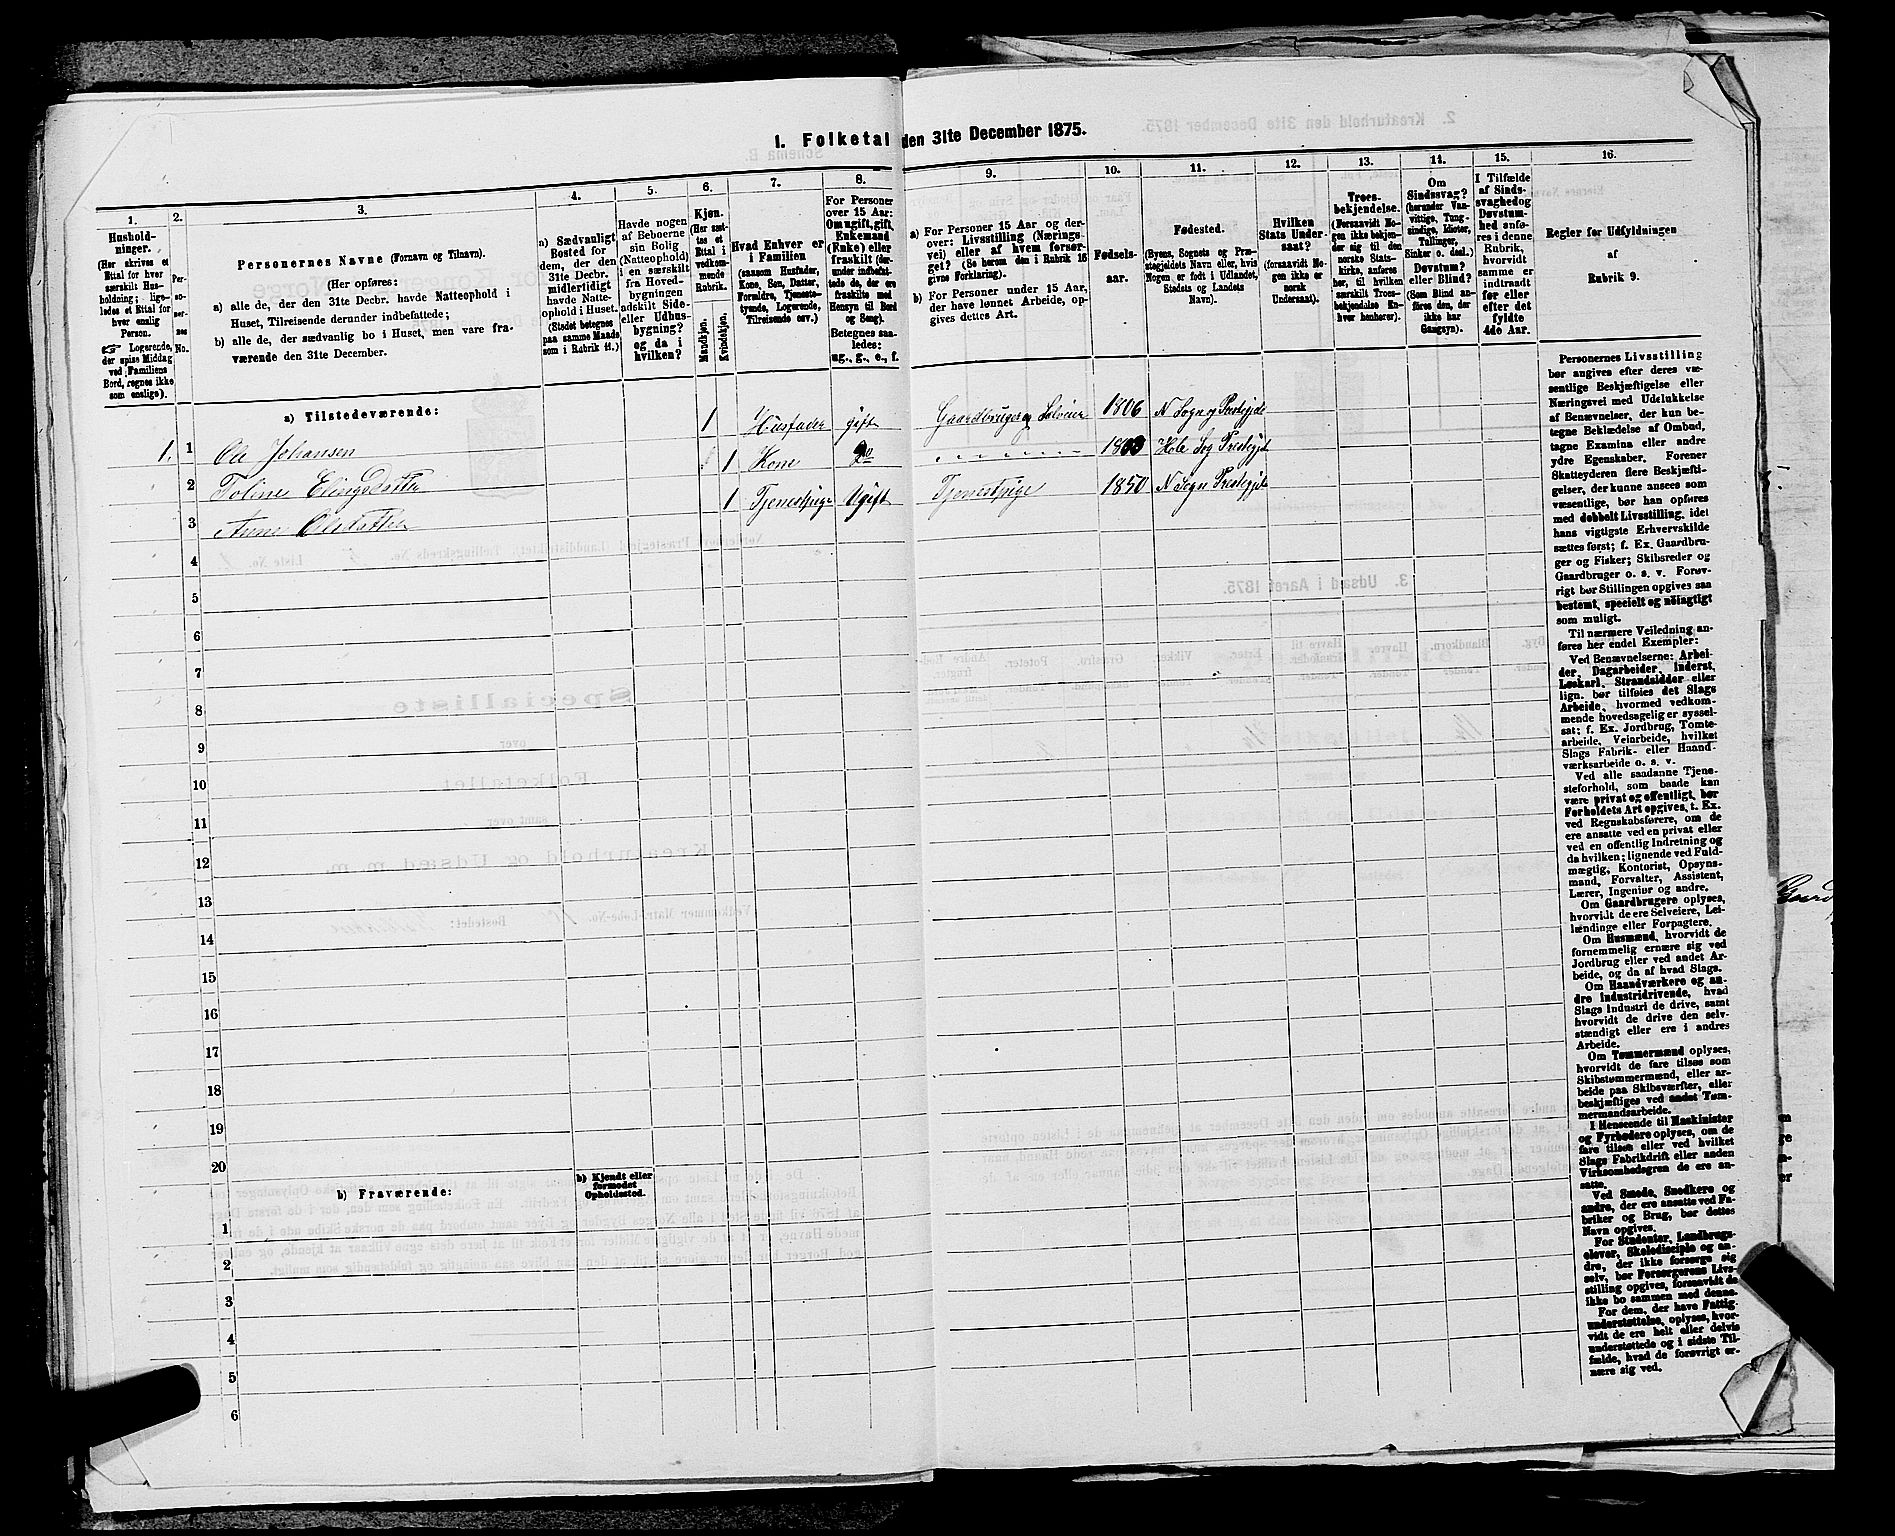 1. Folketal den 31te December 1875.
1.
2.
3.
4.
5.
6.
7.
8.
9.
10.
11.
12.
13.
14.
15.
16.
Hushold-
ninger.
(Her skrives et
Ettal for hver
særskilt Hus-
holdning; lige-
ledes et Ettal for
hver enslig
Person.
☞ Logerende,
der spise Middag
ved Familiens
Bord, regnes ikke
som enslige).
Per-
so-
ner-
nes
No.
Personernes Navne (Fornavn og Tilnavn).
(Her opføres:
a) alle de, der den 31te Decbr. havde Natteophold i
Huset, Tilreisende derunder indbefattede;
b) alle de, der sædvanlig bo i Huset, men vare fra-
værende den 31te December.
a) Sædvanligt
Bosted for
dem, der den
31te Decbr.
midlertidigt
havde Natte-
ophold i Huset.
(Stedet betegnes
paa samme Maade
som i Rubrik 11.)
Havde nogen
af Beboerne
sin Bolig
(Natteophold)
i en særskilt
fra Hoved-
bygningen
adskilt Side-
eller Udhus-
bygning?
og da i
hvilken?
Kjøn.
(Her sæt-
tes et
Ettal i
vedkom-
mende
Rubrik.
Mandkjøn.
Kvindekjøn.
Hvad Enhver er
i Familien
(saasom Husfader,
Kone, Søn, Datter,
Forældre, Tjeneste-
tyende, Logerende,
Tilreisende osv.)
For Personer
over 15 Aar:
Om ugift, gift,
Enkemand
(Enke) eller
fraskilt (der-
under indbefat-
tede de, der ere
fraskilte med
Hensyn til Bord
og Seng).
Betegnes saa-
ledes:
ug., g., e., f.
a) For Personer 15 Aar og der-
over: Livsstilling (Nærings-
vei) eller af hvem forsør-
get? (Se herom den i Rubrik 16
givne Forklaring).
b) For Personer under 15 Aar,
der have lønnet Arbeide, op-
gives dettes Art.
Fødsels-
aar.
Fødested.
(Byens, Sognets og Præ-
stegjeldets Navn eller, hvis
Nogen er født i Udlandet,
Stedets og Landets
Navn).
Hvilken
Stats Under-
saat?
(forsaavidt No-
gen ikke er
norsk
Undersaat).
Troes-
bekjendelse.
(Forsaavidt No-
gen ikke bekjen-
der sig til den
norske Stats-
kirke, anføres
her, til hvilken
særskilt Troes-
bekjendelse En-
hver henhører).
Om
Sindssvag?
(herunder Van-
vittige, Tung-
sindige, Idioter,
Tullinger,
Sinker o. desl.)
Døvstum?
eller Blind?
(Som Blind an-
føres den, der
ikke har
Gangsyn).
I Tilfælde
af Sinds-
svaghed og
Døvstum-
hed anfø-
res i denne
Rubrik,
hvorvidt
samme er
indtraadt
før eller
efter det
fyldte
4de Aar.
Regler for Udfyldningen
af
Rubrik 9.
a) Tilstedeværende:
1. 1 Ole Johansen 1 Husfader gift Gaardbruger og Selveier 1806 N Sogn og Prestegjeld
2 Toline Elingsdatter 1 Kone do 1803 Hole Sog Prestegjeld
3 Anne Olsdatter 1 Tjenestpige Ugift Tjenestpige 1850 N Sogn Prestegjeld
4
5
6
7
8
9
10
11
12
13
14
15
16
17
18
19
20
b) Fraværende:
b) Kjendt eller
formodet
Opholdssted.
1
2
3
4
5
6
Personernes Livsstilling
bør angives efter deres væ-
sentlige Beskjæftigelse eller
Næringsvei med Udelukkelse
af Benævnelser, der kun be-
tegne Beklædelse af Ombud,
tagne Examina eller andre
ydre Egenskaber. Forener
Skatteyderen flere Beskjæfti-
gelser, der kunne ansees som
væsentlige, bør han opføres
med dobbelt Livsstilling, idet
hans vigtigste Erhvervskilde
sættes først; f. Ex. Gaardbru-
ger og Fisker; Skibsreder og
Gaardbruger o. s. v. Forøv-
rigt bør Stillingen opgives saa
bestemt, specielt og nøiagtigt
som muligt.
Til nærmere Veiledning an-
føres her endel Exempler:
Ved Benævnelserne: Arbei-
der, Dagarbeider, Inderst,
Løskarl, Strandsidder eller
lign. bør tilføies det Slags
Arbeide, hvormed vedkom-
mende hovedsagelig er syssel-
sat; f. Ex. Jordbrug, Tomte-
arbeide, Veiarbeide, hvilket
Slags Fabrik- eller Haand-
værksarbeide o. s. v.
Ved alle saadanne Tjene-
steforhold, som baade kan
være privat og offentligt, bør
Forholdets Art opgives, t. Ex.
ved Regnskabsførere, om de
ere ansatte ved en privat eller
ved en offentlig Indretning og
da hvilken; lignende ved Fuld-
mægtig, Kontorist, Opsyns-
mand, Forvalter, Assistent,
Lærer, Ingeniør og andre.
Om Gaardbrugere oplyses,
hvorvidt de ere Selveiere, Lei-
lændinge eller Forpagtere.
Om Husmænd, hvorvidt de
fornemmelig ernære sig ved
Jordbrug eller ved andet Ar-
beide, og da af hvad Slags.
Om Haandværkere og an-
dre Industridrivende, hvad
Slags Industri de drive, samt
hvorvidt de drive den selv-
stændigt eller ere i andres
Arbeide.
Om Tømmermænd oplyses,
hvorvidt de fare tilsøs som
Skibstømmermænd, eller ar-
beide paa Skibsværfter, eller
beskjæftiges ved andet Tøm-
mermandsarbeide.
I Henseende til Maskinister
og Fyrbødere oplyses, om de
fare tilsøs eller ved hvilket
Slags Fabrikdrift eller anden
Virksomhedsgren de ere an-
satte.
Ved Smede, Snedkere og
andre, der ere ansatte ved Fa-
briker og Brug, bør dettes
Navn opgives.
For Studenter, Landbrugs-
elever, Skoledisciple og an-
dre, der ikke forsørge sig
selv, bør Forsørgerens Livs-
stilling opgives, forsaavidt de
ikke bo sammen med denne.
For dem, der have Fattig-
understøttelse, oplyses, hvor-
vidt de ere helt eller delvis
understøttede og i sidste Til-
fælde, hvad de forøvrigt er-
nære sig ved.